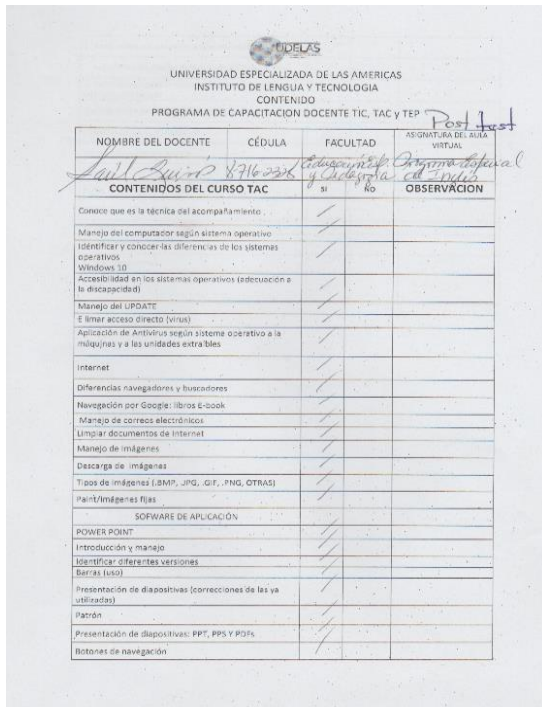 UDELAS
UNIVERSIDAD ESPECIALIZADA DE LAS AMERICAS
INSTITUTO DE LENGUA Y TECNOLOGIA
CONTENIDO
PROGRAMA DE CAPACITACION DOCENTE TIC, TAC y TEP
Post test
NOMBRE DEL DOCENTE CÉDULA FACULTAD ASIGNATURA DEL AULA VIRTUAL
Saúl Educación y
CONTENIDOS DEL CURSO TAC SI NO OBSERVACION
Conoce que es la técnica del acompañamiento .
Manejo del computador según sistema operativo
Identificar y conocer las diferencias de los sistemas
operativos
Windows 10
Accesibilidad en los sistemas operativos (adecuación a
la discapacidad)
Manejo del UPDATE
E limar acceso directo (virus)
Aplicación de Antivirus según sistema operativo a la
máquinas y a las unidades extraíbles
Internet
Diferencias navegadores y buscadores
Navegación por Google: libros E-book
Manejo de correos electrónicos
Limpiar documentos de Internet
Manejo de Imágenes
Descarga de imágenes
Tipos de Imágenes (.BMP, .JPG, .GIF, .PNG, OTRAS)
Paint/Imágenes fijas
SOFWARE DE APLICACIÓN
POWER POINT
Introducción y manejo
Identificar diferentes versiones
Barras (uso)
Presentación de diapositivas (correcciones de las ya
utilizadas)
Patrón
Presentación de diapositivas: PPT, PPS Y PDFs
Botones de navegación